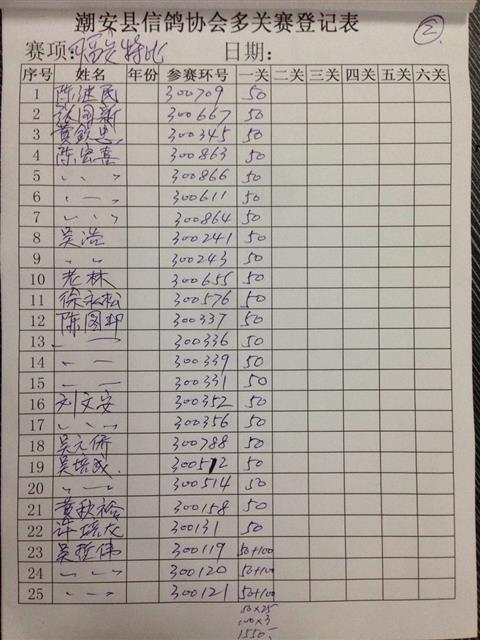 潮安县信鸽协会多关赛登记表
②
赛项: 特比 日期:
序号 姓名 年份 参赛环号 一关 二关 三关 四关 五关 六关
1 陈继民 300709 50
2 张国新 300667 50
3 黄钦忠 300345 50
4 陈宏喜 300863 50
5 〃 〃 〃 300866 50
6 〃 — 〃 300611 50
7 〃 〃 〃 300864 50
8 吴浩 300241 50
9 〃 〃 300243 50
10 老林 300655 50
11 徐永松 300576 50
12 陈图却 300337 50
13 〃 — 300336 50
14 〃 — 300339 50
15 〃 — 300331 50
16 刘文安 300352 50
17 〃 〃 〃 300356 50
18 吴元侨 300788 50
19 吴培成 300512 50
20 〃 — 〃 300514 50
21 黄秋裕 300158 50
22 许培龙 300131 50
23 吴哲伟 300119 50+100
24 〃 〃 〃 300120 50+100
25 〃 〃 〃 300121 50+100
50×25
100×3
1550.